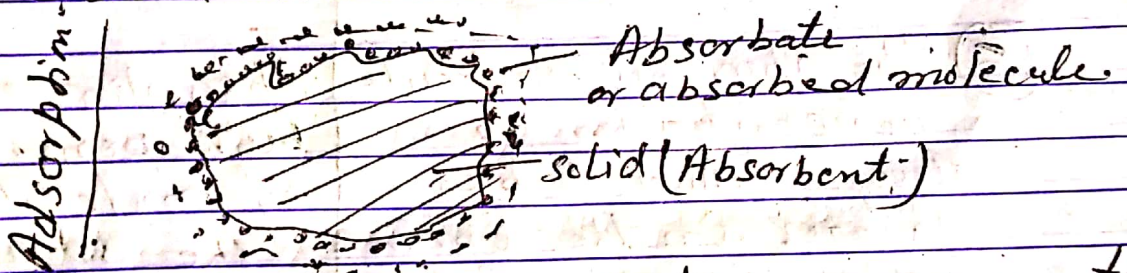 Adsorption
Absorbate
or absorbed molecule.
solid (Absorbent)